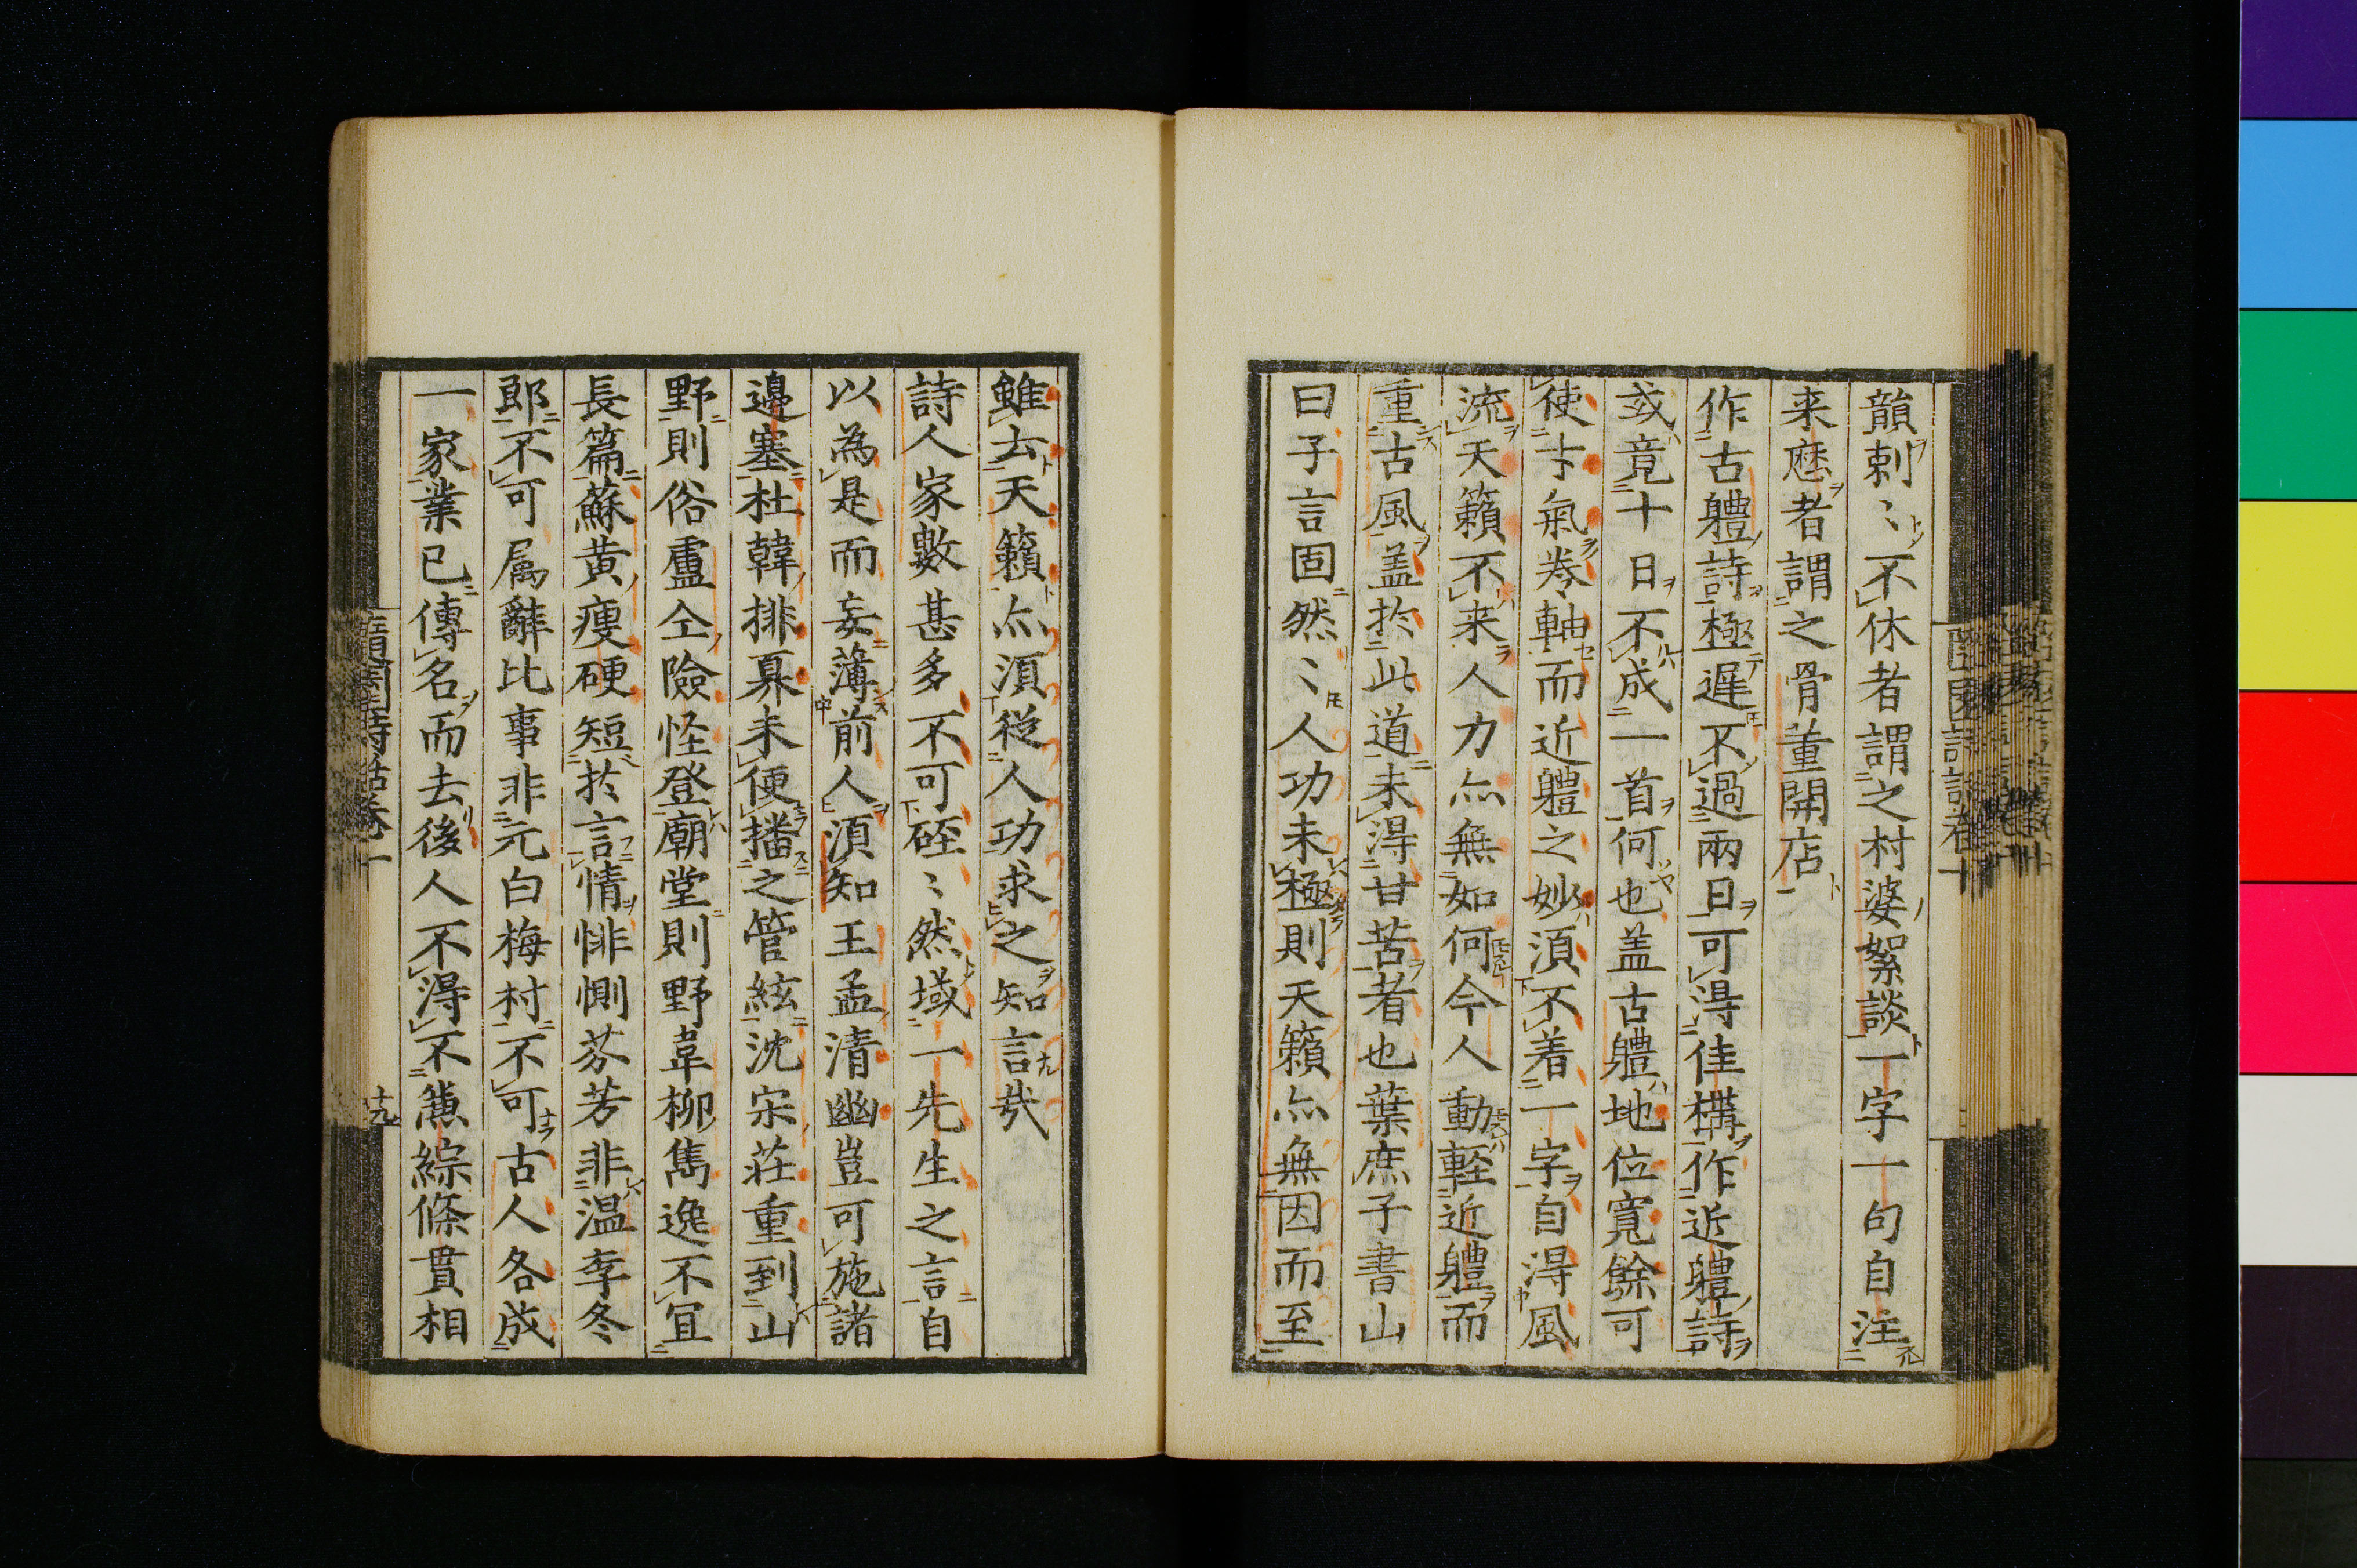 韻剌〻不休者謂之村婆絮談一字一句自注
来歴者謂之骨董開店
作古軆詩極遲不過兩日可淂佳構作近軆詩
或竟十日不成一首何也盖古軆地位寛餘可
使才氣巻軸而近軆之妙須不着一字自淂風
流天籟不来人力亦無如何今人動輕近軆而
重古風盖扵此道未淂甘苦者也葉庶子書山
曰子言固然〻人功未極則天籟亦無因而至
雖云天籟亦須從人功求之知言哉
詩人家數甚多不可硜〻然域一先生之言自
以為是而妄薄前人須知王孟清幽豈可施諸
邊塞杜韓排奡未便播之管絃沈宋莊重到山
野則俗盧仝險怪登廟堂則野韋柳雋逸不宜
長篇蘇黄瘦硬短扵言情悱惻芬芳非温李冬
郎不可属辭比事非元白梅村不可古人各成
一家業已傳名而去後人不淂不蕉綜條貫相
隨園詩話卷一
十九